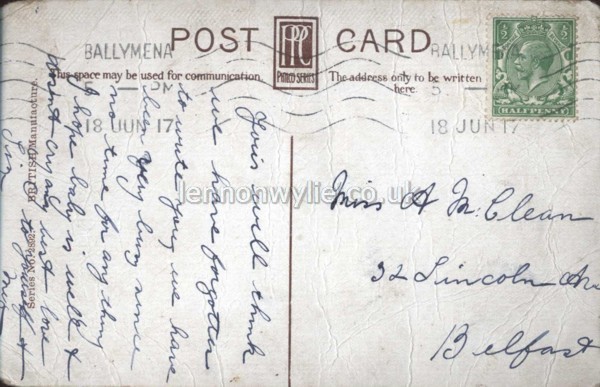 POST CARD
PRC
PATCO SERIES
This space may be used for communication.
The address only to be written
here.
BALLYMENA
PM
18 JUN 17
BALLYMENA
5
18 JUN 17
HALFPENNY
BRITISH Manufacture.
Series No.
You will think
we have forgotten
to write you, we have
been very busy since
no time for anything
I hope baby is well &
doesn't cry any best love
to yourself &
lennonwylie.co.uk
Miss A McClean
32 Lincoln Ave
Belfast